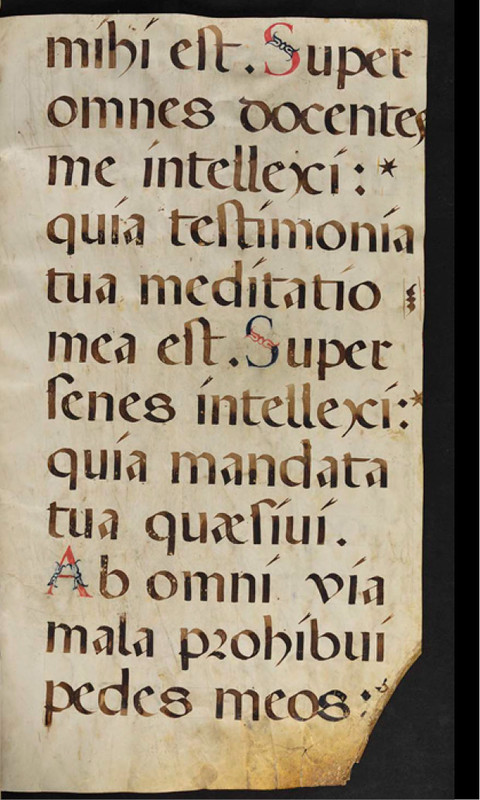 mihi est. Super
omnes docentes
me intellexi: *
quia testimonia
tua meditatio
mea est. Super
senes intellexi: *
quia mandata
tua quæsiui.
Ab omni via
mala prohibui
pedes meos: *